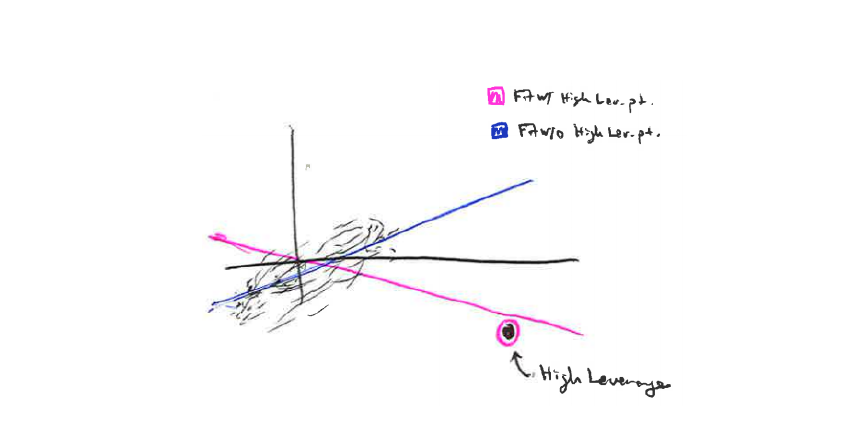 Fit w/ High Lev. pt.
Fit w/o High Lev. pt.
High Leverage